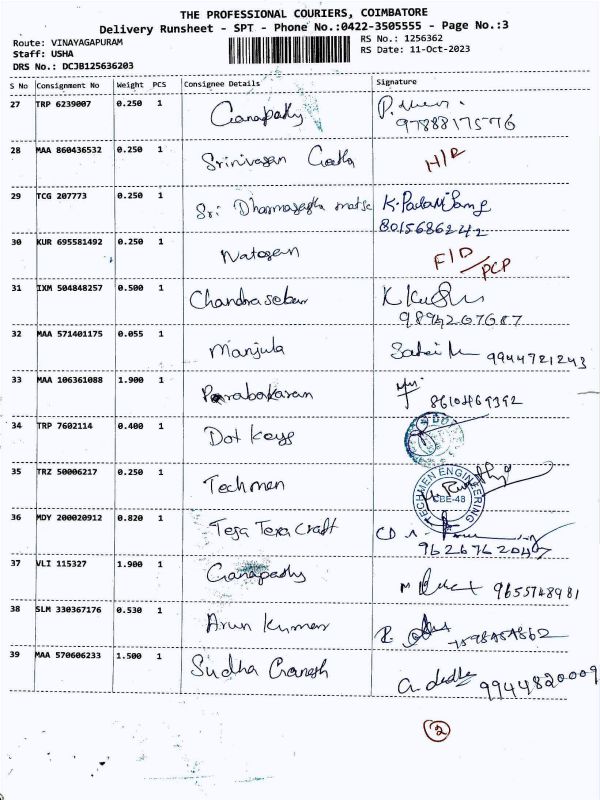 THE PROFESSIONAL COURIERS, COIMBATORE
Delivery Runsheet - SPT - Phone No.:0422-3505555 - Page No.:3
Route: VINAYAGAPURAM
Staff: USHA
DRS No.: DCJB125636203
RS No.: 1256362
RS Date: 11-Oct-2023
S No Consignment No Weight PCS Consignee Details Signature
27 TRP 6239007 0.250 1 Ganapathy
9788817576
28 MAA 860436532 0.250 1 Srinivasan Geetha H/R
29 TCG 207773 0.250 1 Sri
8015686242
30 KUR 695581492 0.250 1 Natesan F/D/PCP
31 IXM 504848257 0.500 1 Chandrasekar
9894207687
32 MAA 571401175 0.055 1 Manjula 9944721243
33 MAA 106361088 1.900 1 Parabakaran 8610469392
34 TRP 7602114 0.400 1 Dot Keys
35 TRZ 50006217 0.250 1 Techmen TECHMEN ENGINEERING CBE-48
36 MDY 200020912 0.820 1 Teja Texa Craft
37 VLI 115327 1.900 1 Ganapathy 9655748981
38 SLM 330367176 0.530 1 Arun Kumar
39 MAA 570606233 1.500 1 Sudha Ganesh 9944820009
2